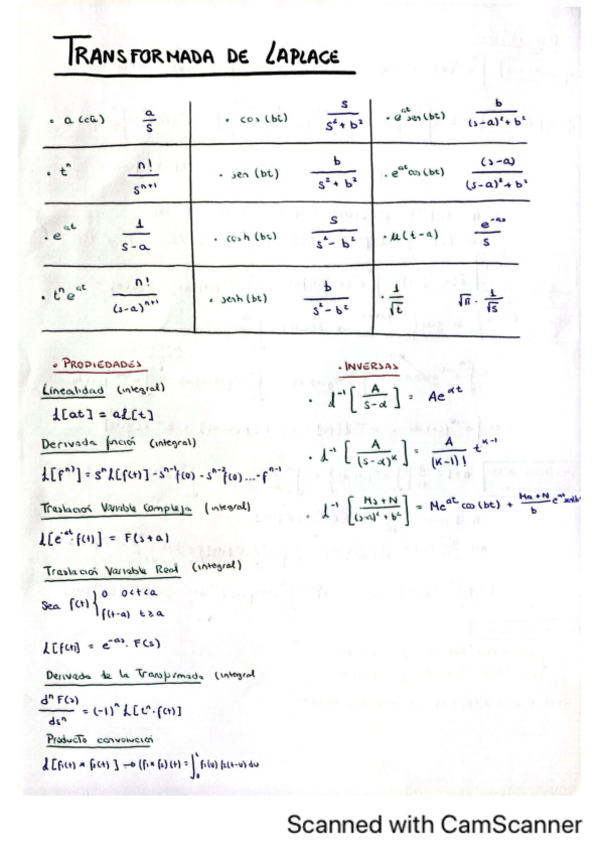 TRANSFORMADA DE LAPLACE
• a (cte) a/s • cos (bt) s/(s²+b²) • e^at sen(bt) b/((s-a)²+b²)
• t^n n!/s^(n+1) • sen (bt) b/(s²+b²) • e^at cos(bt) (s-a)/((s-a)²+b²)
• e^at 1/(s-a) • cosh (bt) s/(s²-b²) • μ(t-a) e^-as/s
• t^n e^at n!/(s-a)^(n+1) • senh (bt) b/(s²-b²) • 1/√t √π · 1/√s
• PROPIEDADES
Linealidad (integral)
L[at] = aL[t]
Derivada función (integral)
L[f^n)] = s^n L[f(t)] - s^(n-1) f(0) - s^(n-2) f(0) ... - f^(n-1)
Traslación Variable Compleja (integral)
L[e^-at · f(t)] = F(s+a)
Traslación Variable Real (integral)
Sea f(t) { 0 0<t<a
f(t-a) t≥a
L[f(t)] = e^-as · F(s)
Derivada de la Transformada (integral
d^n F(s)/ds^n = (-1)^n L[t^n · f(t)]
Producto convolución
L[f₁(t) * f₂(t)] → (f₁ * f₂)(t) = ∫₀^t f₁(u) f₂(t-u) du
• INVERSAS
• L^-1 [A/(s-α)] = Ae^αt
• L^-1 [A/(s-α)^k] = A/(k-1)! t^(k-1)
• L^-1 [(Ms+N)/((s-a)²+b²)] = Me^at cos(bt) + (Ma+N)/b e^at
Scanned with CamScanner